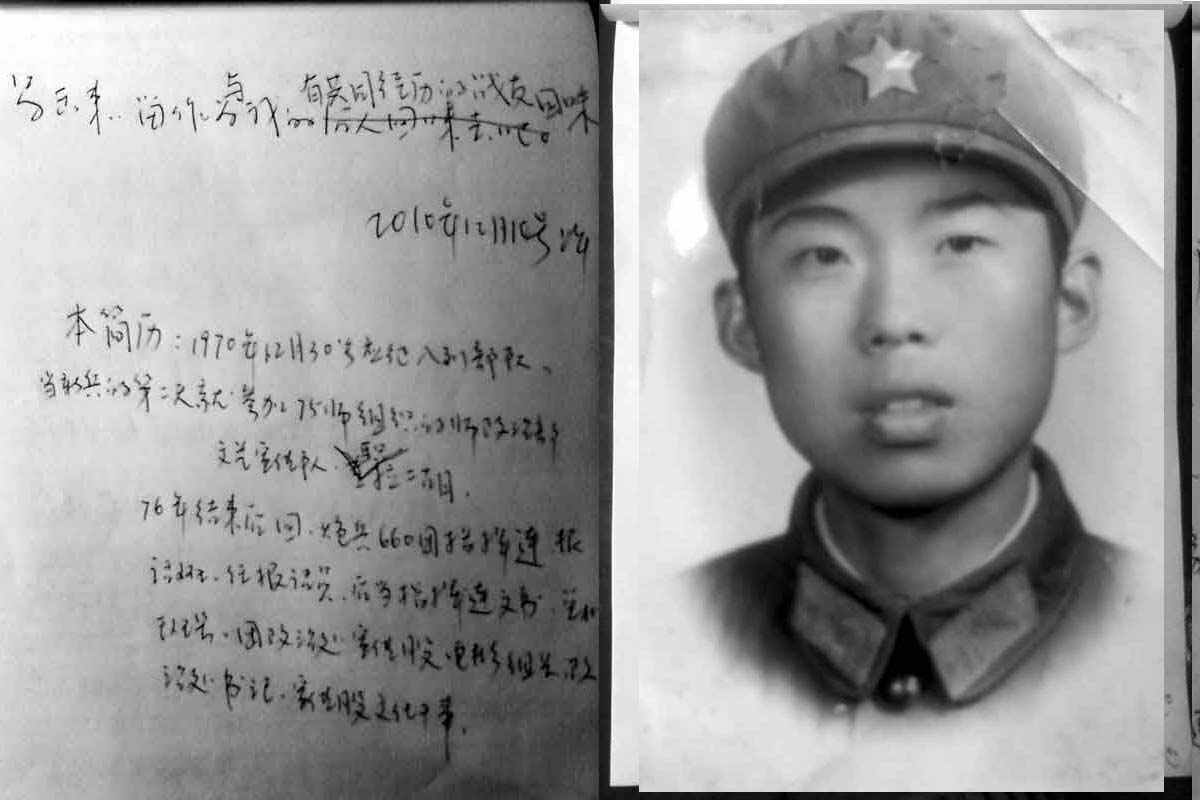 写出来.. 留作与我的有共同经历的战友回味
后人回味去吧。
2010年12月10号
本简历：1970年12月30号 入到部队、
当新兵的第二天就参加75师组织的师政治部
文艺宣传队、二百日.
76年结束后回.炮兵660团指挥连 报
话班.任报话员.后当指挥连文书.
班长.团政治处宣传股电影组长.政
治处书记.宣传股文化干事.